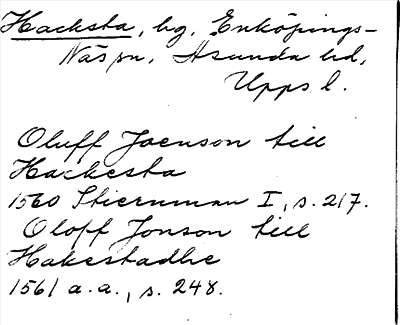 Hacksta, hg, Enköpings-
Näs sn, Åsunda hd,
Upps l.
Oluff Joenson till
Hackesta
1560 Stiernman I, s. 217.
Oloff Jonson till
Hakestadhe
1561 a.a., s. 248.